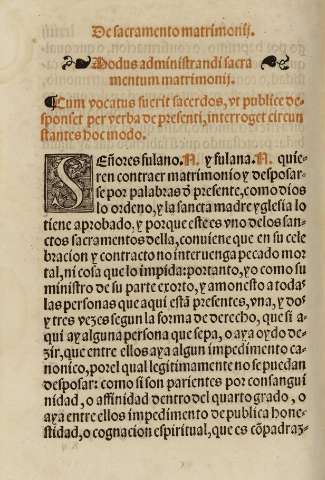 De sacramento matrimonij.
Modus administrandi sacra
mentum matrimonij.
¶Cum vocatus fuerit sacerdos, vt publice de-
sponset per verba de presenti, interroget circun
stantes hoc modo.
SEñores fulano. N. y fulana. N. quie-
ren contraer matrimonio y desposar-
se por palabras d̃ presente, como dios
lo ordeno, y la sancta madre yglesia lo
tiene aprobado. y porque este es vno delos san-
ctos sacramentos della, conuiene que en su cele
bracion y contracto no interuenga pecado mor
tal, ni cosa que lo impida: portanto, yo como su
ministro de su parte exorto, y amonesto a todas
las personas que aqui estã presentes, vna, y dos
y tres vezes segun la forma de derecho, que si a-
qui ay alguna persona que sepa, o aya oydo de-
zir, que entre ellos aya algun impedimento ca-
nonico, por el qual legitimamente no se puedan
desposar: como si son parientes por consangui
nidad, o affinidad dentro del quarto grado, o
aya entre ellos impedimento de publica hone-
stidad, o cognacion espiritual, que es cõpadraz-